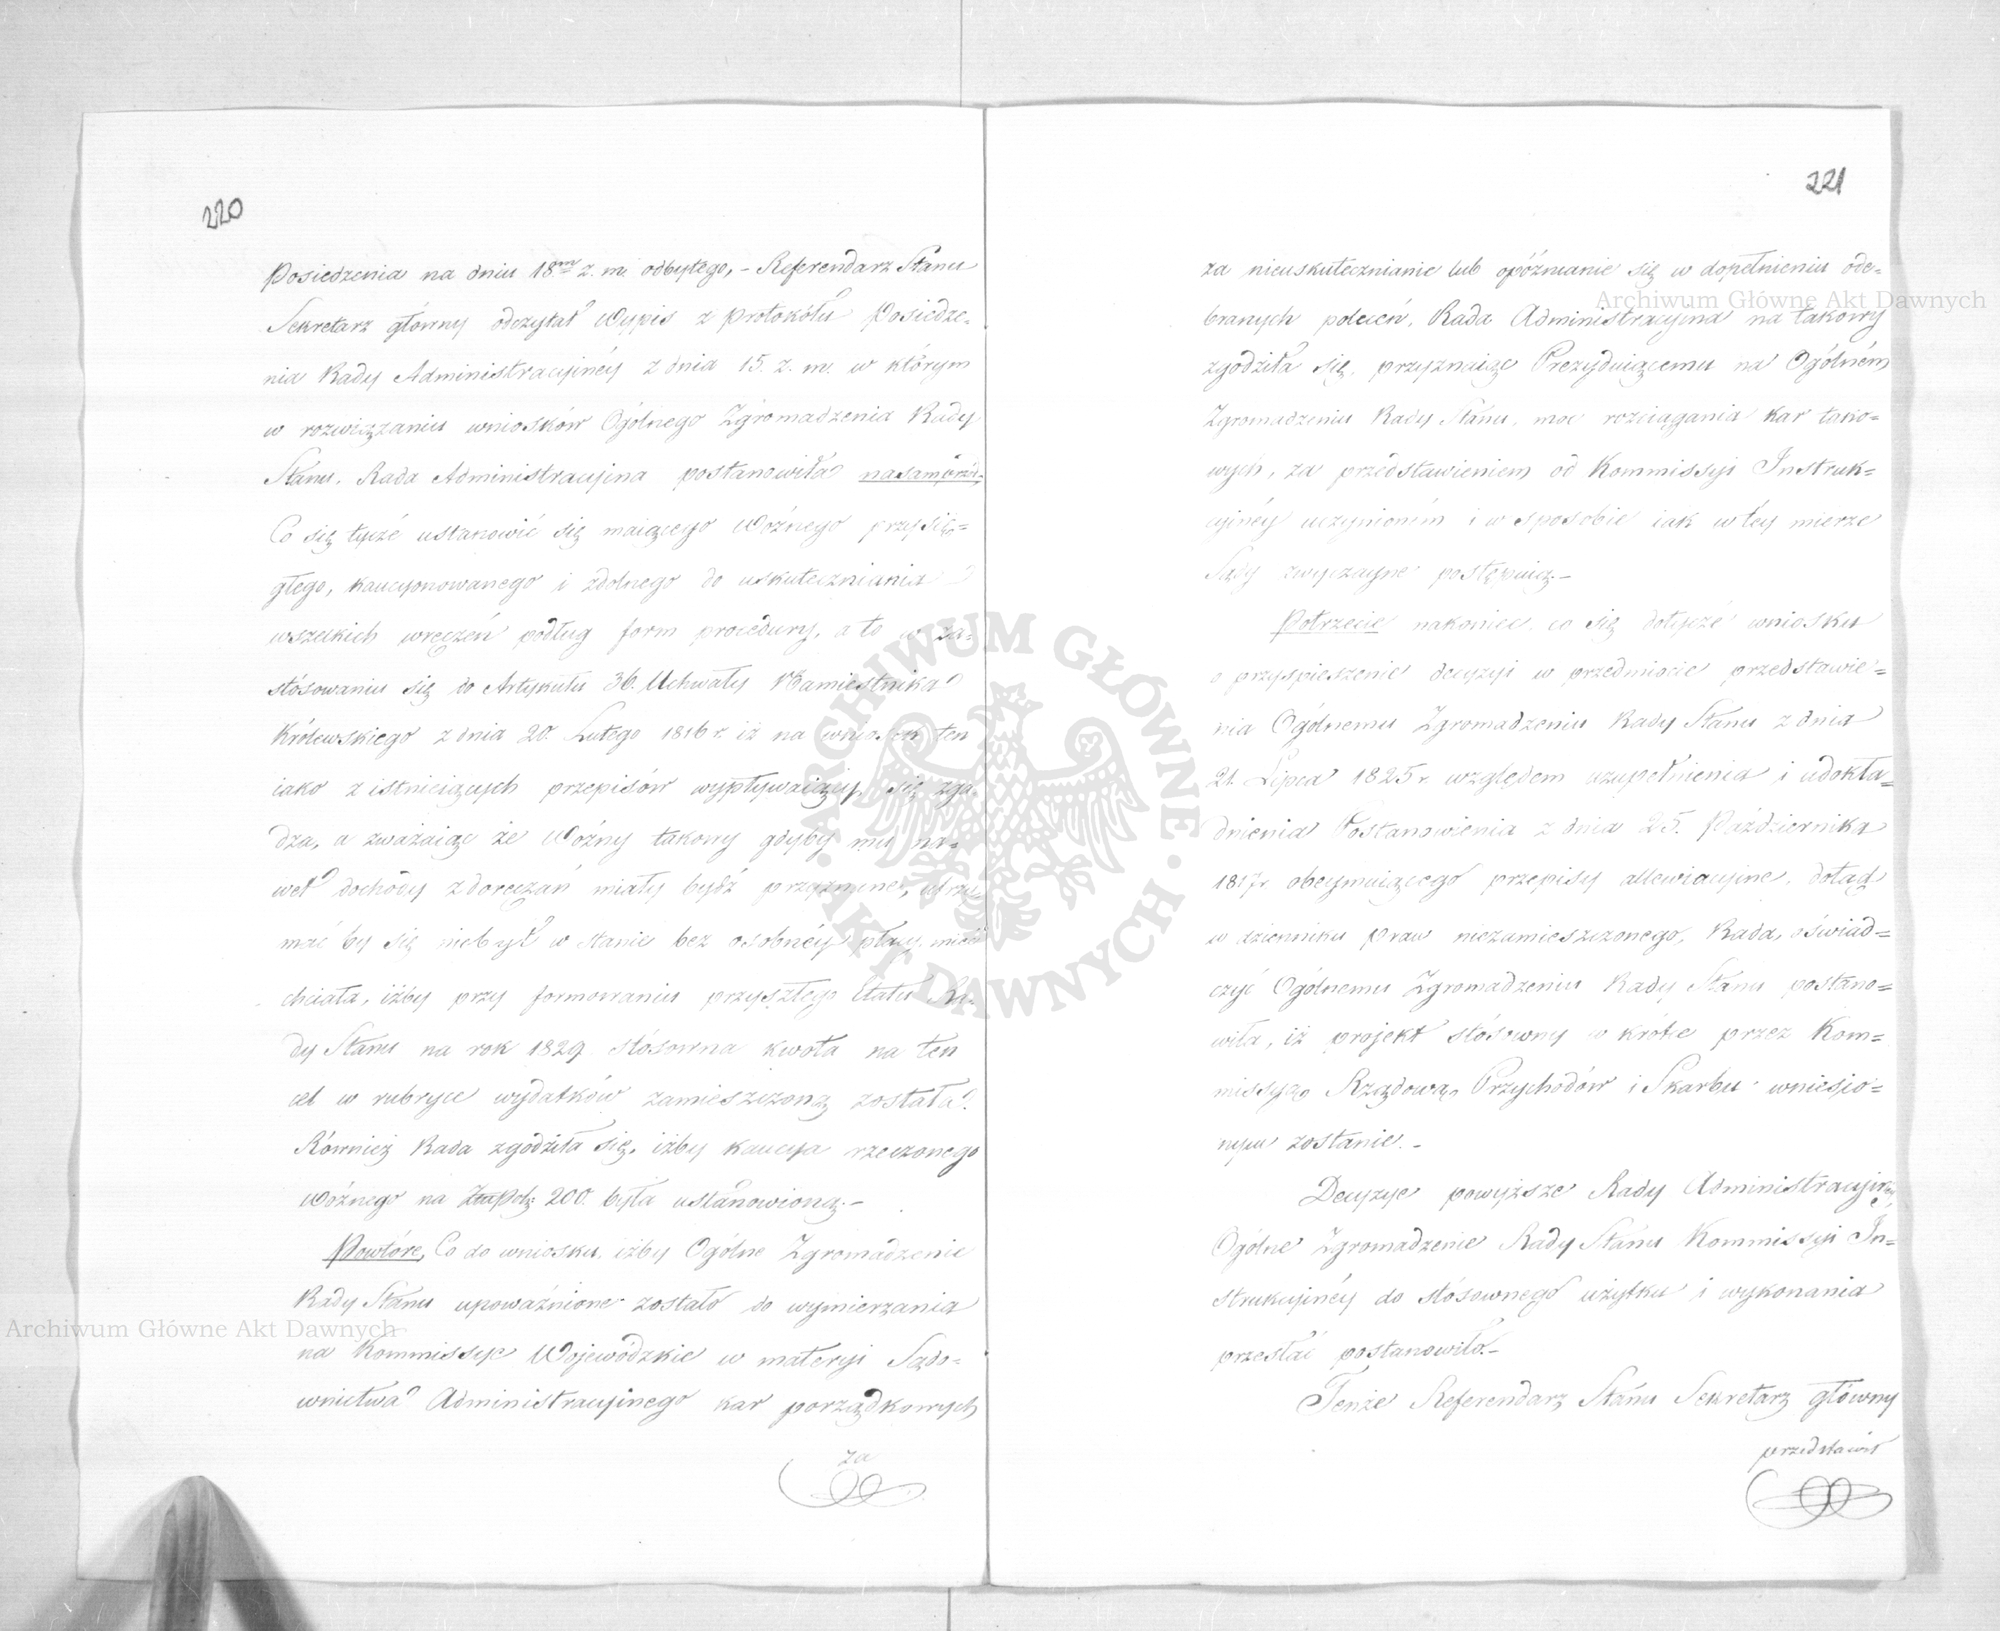 220
Posiedzenia na dniu 18. z. m. odbytego, - Referendarz Stanu
Sekretarz główny odczytał Wypis z Protokółu Posiedze=
nia Rady Administracyinéy z dnia 15. z. m. w którym
w rozwiązaniu wniosków Ogólnego Zgromadzenia Rady
Stanu, Rada Administracyina postanowiła nasamprzód,
Co się tycze ustanowić się maiącego Woźnego przysię=
głego, kaucyonowanego i zdolnego do uskuteczniania
wszelkich wręczeń podług form procedury, a to w za=
stósowaniu się do Artykułu 36. Uchwały Namiestnika
Królewskiego z dnia 20. Lutego 1816 r. iż na wniosek ten
iako z istnieiących przepisów wypływaiący, się zga=
dza, a zważaiąc że Woźny takowy gdyby mu na=
wet dochody z doręczań miały bydź przyznane, utrzy=
mać by się niebył w stanie bez osobnéy płacy, mieć
chciała, iżby przy formowaniu przyszłego Etatu Ra=
dy Stanu na rok 1829 stósowna kwota na ten
cel w rubryce wydatków zamieszczoną została.
Również Rada zgodziła się, iżby kaucya rzeczonego
Woźnego na Złtpol: 200. była ustanowioną. -
Powtóre, Co do wniosku, iżby Ogólne Zgromadzenie
Rady Stanu upoważnione zostało do wymierzania
na Kommissye Woiewódzkie w materyi Sądo=
wnictwa Administracyinego kar porządkowych
za
221
za nieuskutecznianie lub opóźnianie się w dopełnieniu ode=
branych poleceń, Rada Administracyina na takowy
zgodziła się, przyznaiąc Prezyduiącemu na Ogólném
Zgromadzeniu Rady Stanu, moc rozciągania kar tako=
wych, za przedstawieniem od Kommissyi Instruk=
cyinéy uczynioném i w sposobie iak w téy mierze
Sądy zwyczayne postępuią. -
Potrzecie nakoniec, co się dotycze wniosku
o przyspieszenie decyzyi w przedmiocie przedstawie=
nia Ogólnemu Zgromadzeniu Rady Stanu z dnia
21. Lipca 1825 r. względem uzupełnienia i udokła=
dnienia Postanowienia z dnia 25. Października
1817 r. obeymuiącego przepisy allewiacyine, dotąd
w dzienniku praw niezamieszczonego, Rada, oświad=
czyć Ogólnemu Zgromadzeniu Rady Stanu postano=
wiła, iż projekt stósowny w krótce przez Kom=
missyą Rządową Przychodów i Skarbu wniesio=
nym zostanie. -
Decyzye powyższe Rady Administracyinéy
Ogólne Zgromadzenie Rady Stanu Kommissyi In=
strukcyinéy do stósownego użytku i wykonania
przesłać postanowiło. -
Tenże Referendarz Stanu Sekretarz główny
przedstawił
Archiwum Główne Akt Dawnych
Archiwum Główne Akt Dawnych
ARCHIWUM GŁÓWNE · AKT DAWNYCH ·